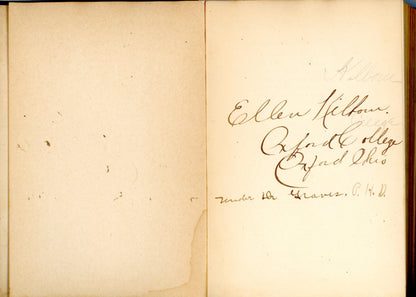 Ellen
Oxford College
Oxford Ohio
under Dr. Graves. P. H. D.